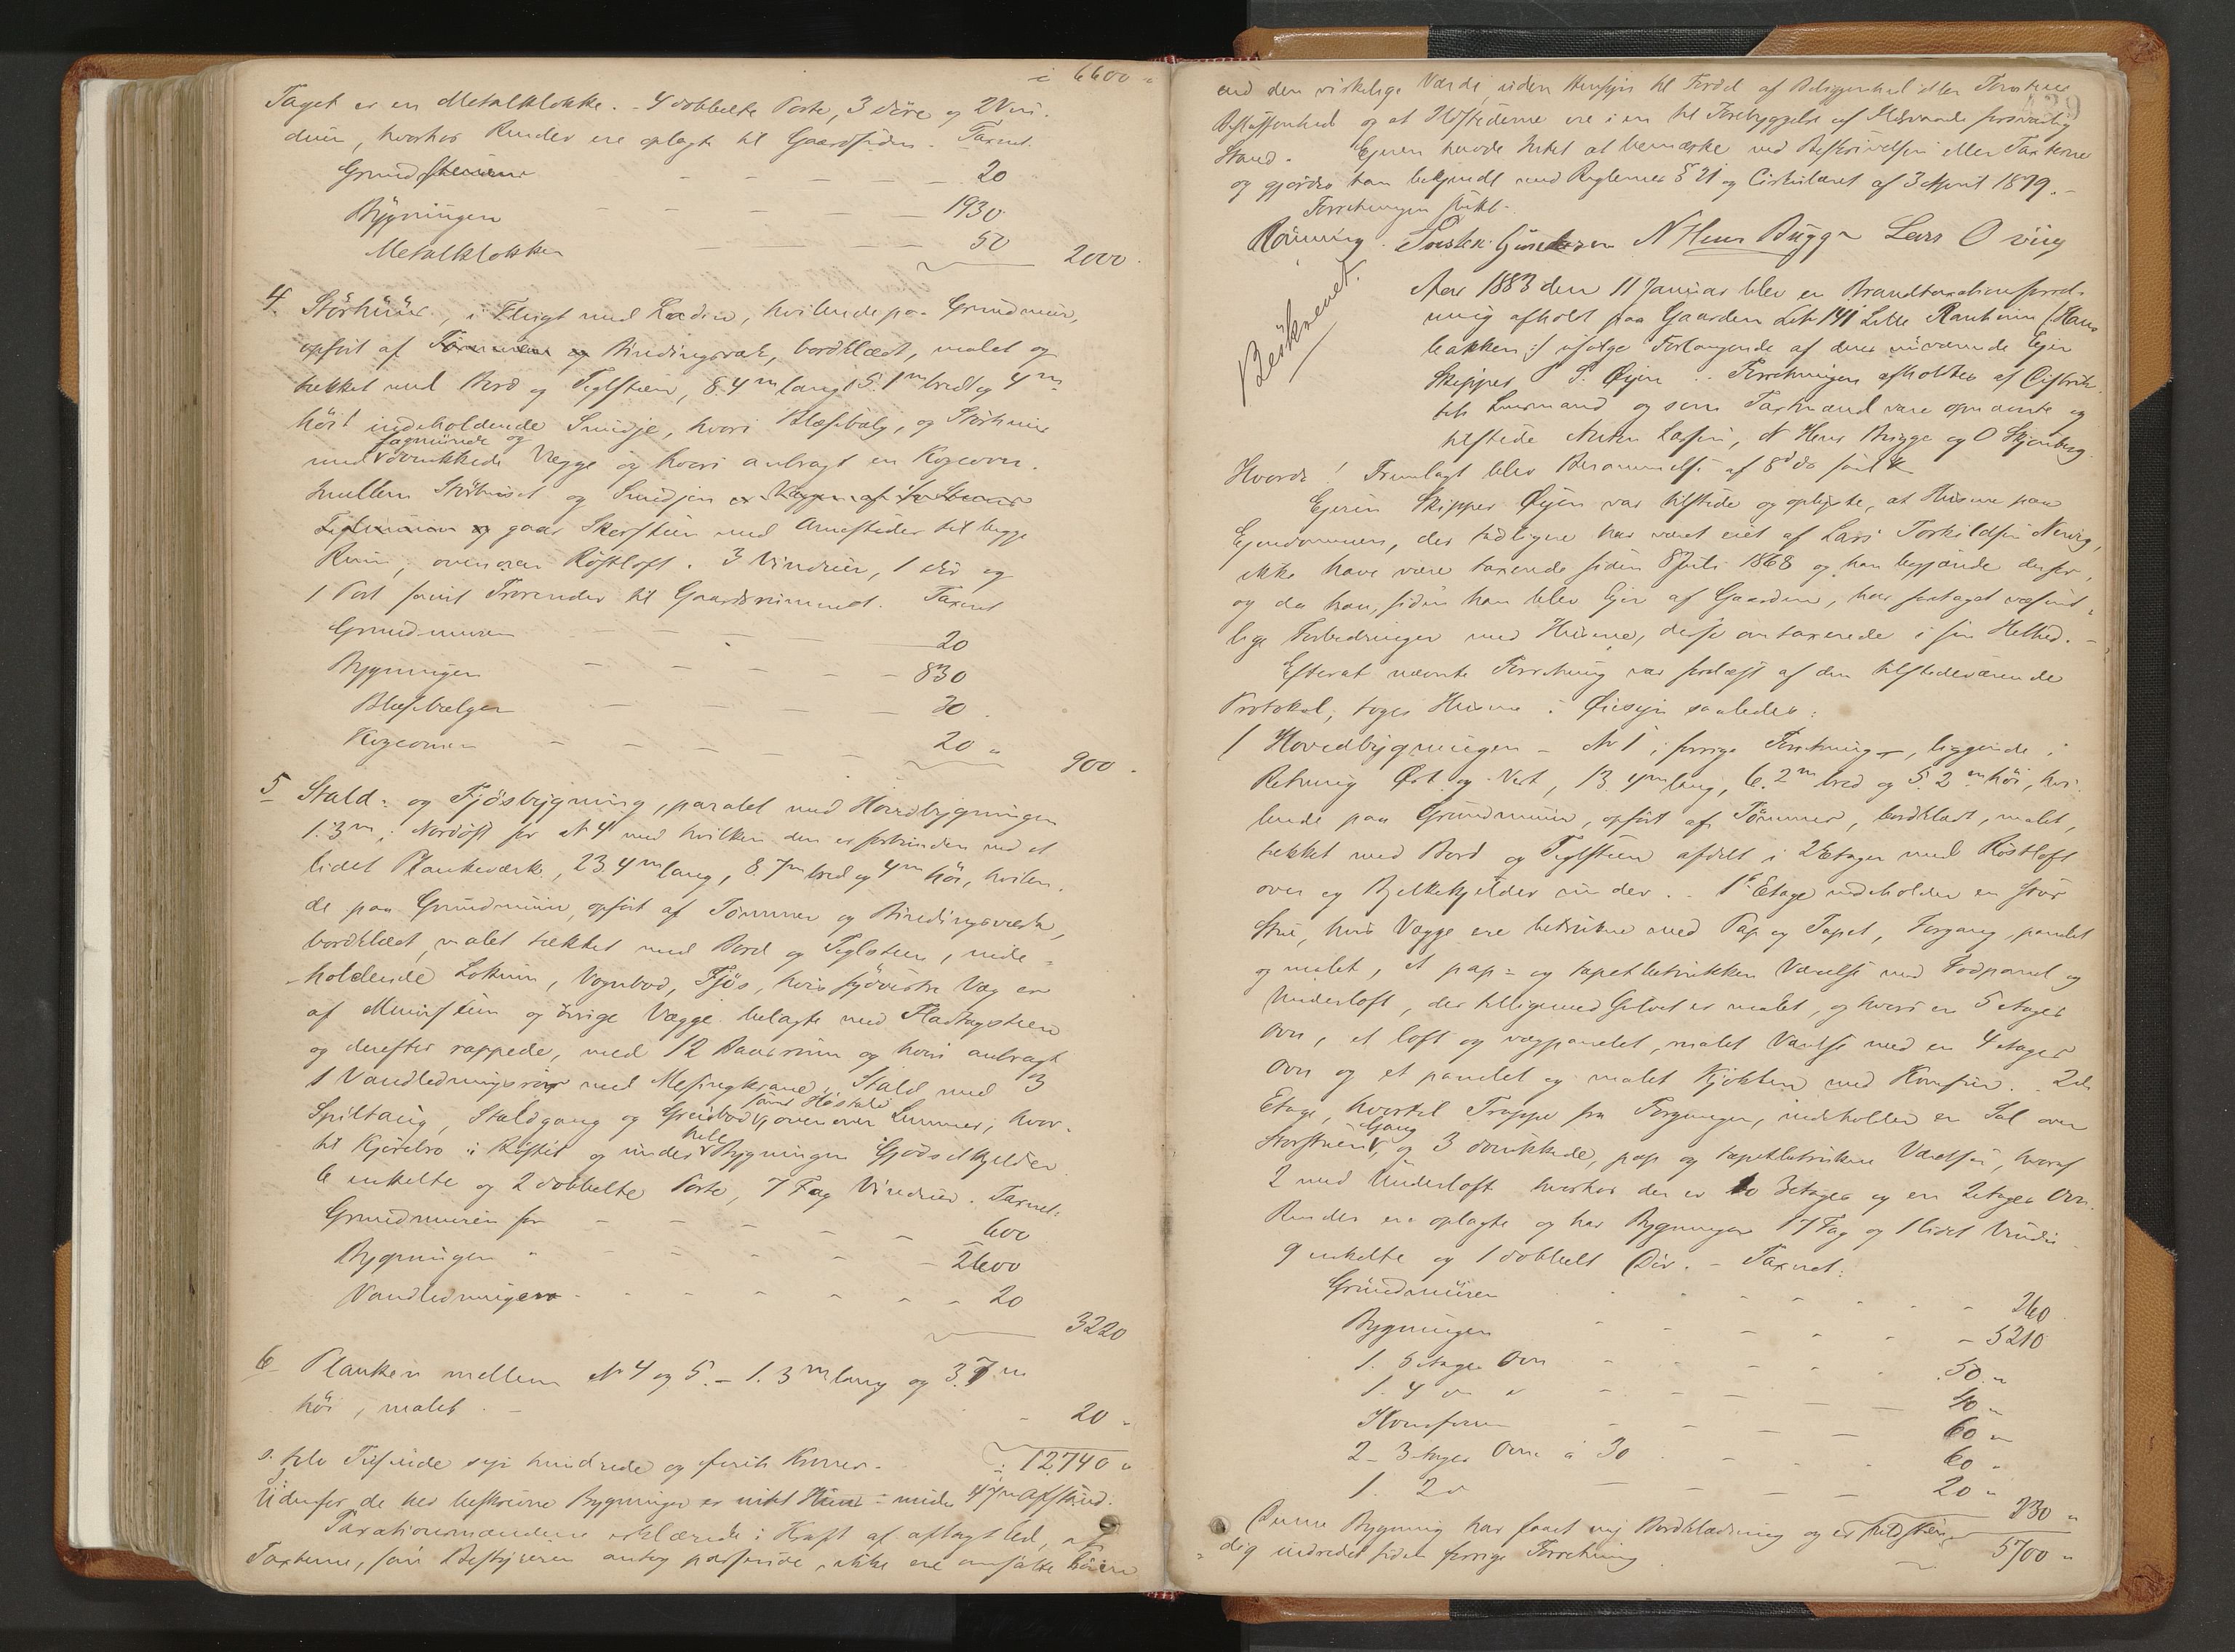 i 6600 "
Taget er en Metalklokke. - 4 dobbelte Porte, 3 Döre og 2 Vin-
duer, hvorhos Render ere oplagte til Gaardsiden. Taxeret
Grundstenene 20
Bygningen 1930
Metalklokken 50 2000.
4. Störhuus, i Flugt med Laden, hvilende paa Grundmuur,
opfört af Tömmer og Bindingsværk, bordklædt, malet og
tækket med Bord og Teglsteen, 8.4 m lang, 5.1 m bred og 4 m
höi indeholdende Smidje, hvori Blæsebælg, og Störhuus
med fagmurede og vedrukkede Vægge og hvori anbragt en Kogeovn.
Imellem Störhuset og Smidjen er Væggen af
og gaar Skorsteen med Arnesteder til begge
Rum; ovenover Röstloft. 3 Vinduer, 1 Dör og
1 Port samt Trærender til Gaardsrummet. Taxeret
Grundmuren 20
Bygningen 830
Blæsebælgen 30
Kogeovnen 20 " 900.
5 Stald- og Fjösbygning, paralel med Hovedbygningen
1.3 m i Nordöst for No 4 med hvilken den er forbunden ved et
lidet Plankeværk, 23.4 m lang, 8.7 m bred og 4 m höi, hvilen-
de paa Grundmuur, opfört af Tömmer og Bindingsværk,
bordklædt, malet tækket med Bord og Teglsteen, inde-
holdende Lokum, Vognbod, Fjös, hvis sydvestre Væg er
af Muursteen og övrige Vægge belagte med Fladtagsteen
og derefter rappede, med 12 Baasrum og hvori anbragt
1 Vandledningsrör med Messingkrane, Stald med 3
Spiltaug, Staldgang og Greibod samt Höstald, ovenover Lemmer, hvor-
til Kjörebro i Röstet og under hele Bygningen Gjödselkjelder.
6 enkelte og 2 dobbelte Porte, 7 Fag Vinduer. Taxeret:
Grundmuren for 600
Bygningen " 2600
Vandledningen 20
3220
6 Planken mellem No 4 og 5. - 1.3 m lang og 3.7 m
höi, malet. - 20 "
12740 "
s. tolv Tusinde syv hundrede og firti Kroner.
Udenfor de her beskrevne Bygninger er intet Huus inden Afstand.
Taxationsmændene erklærede i Kraft af aflagt Ed, at
Taxterne, som Bestyreren antog passende, ikke ere ansatte höiere
429
end den virkelige Værdi, uden Hensyn til Fordel af Beliggenhed eller Tomtens
Beskaffenhed og at Ildstederne ere i en til Forebyggelse af Ildsvaade forsvarlig
Stand. Eieren havde Intet at bemærke ved Beskrivelsen eller Taxterne
og gjordes han bekjendt med Reglernes § 21 og Cirkulæret af 3 April 1879. -
Forretningen sluttet.
Rönning. Torsten Gundersen N Hens Bügge Lars O ving
Beskrevet.
Aar 1883 den 11 Januar blev en Brandtaxationsforret-
ning afholdt paa Gaarden Litr 141 Lille Ranheim /: Hans
bakken :/ ifölge Forlangende af deres nuværende Eier
Skipper P. Öyen. Forretningen afholdtes af Distrik-
tets Lensmand og som Taxtmænd vare opnævnte og
tilstede Anton Lassen, N Hens Brigge og O Skjenberg.
Hvorda! Fremlagt blev Berammelse af 8d ds saal.
Eieren Skipper Öyen var tilstede og oplyste, at Husene paa
Eiendommen, der tidligere har været eiet af Lars Torkildsen Nervig,
ikke have være taxerede siden 8 Juli 1868 og han begjærede derfor,
og da han, siden han blev Eier af Gaarden, har foretaget væsent-
lige Forbedringer ved Husene, disse omtaxerede i sin Helhed. -
Efterat nævnte Forretning var forelæst af den tilstedeværende
Protokol, toges Husene i Öiesyn saaledes:
1 Hovedbygningen - No 1 i forrige Forretning, liggende i
Retning Öst og Vest, 13.4 m lang, 6.2 m bred og 5.2 m höi, hvi-
lende paa Grundmuur, opfört af Tömmer, bordklædt, malet,
tækket med Bord og Teglsteen afdelt i 2 Etager med Röstloft
over og Bjelkekjelder under. - 1e Etage indeholder en Stor
Stue, hvis Vægge ere betrukne med Pap og Tapet, Forgang, panelet
og malet, et pap- og tapetbetrukken Værelse med Fodpanel og
Underloft, der tilligemed Gulvet er malet, og hvori en 5 Etages
Ovn, et loft og vægpanelet, malet Værelse med en 4 Etages
Ovn og et panelet og malet Kjökken med Komfur. - 2den
Etage, hvortil Trappe fra Forgangen, indeholder en Sal over
Storstuen, Gang og 3 vedrukkede, pap og tapetbetrukne Værelser, hvoraf
2 med Underloft hvorhos der er to 3etages og en 2etages Ovn.
Render ere oplagte og har Bygningen 17 Fag og 1 lidet Vindu
9 enkelte og 1 dobbelt Dör. - Taxeret:
Grundmuren 260
Bygningen 5210
1. 5 etages Ovn 50 "
1. 4 " " 40 "
Komfuren 60 "
2 - 3 etages Ovne à 30 60 "
1. 2 " 20 "
230 "
Denne Bygning har faaet ny Bordklædning og er fuldstæn-
dig indredet siden forrige Forretning 5700 "